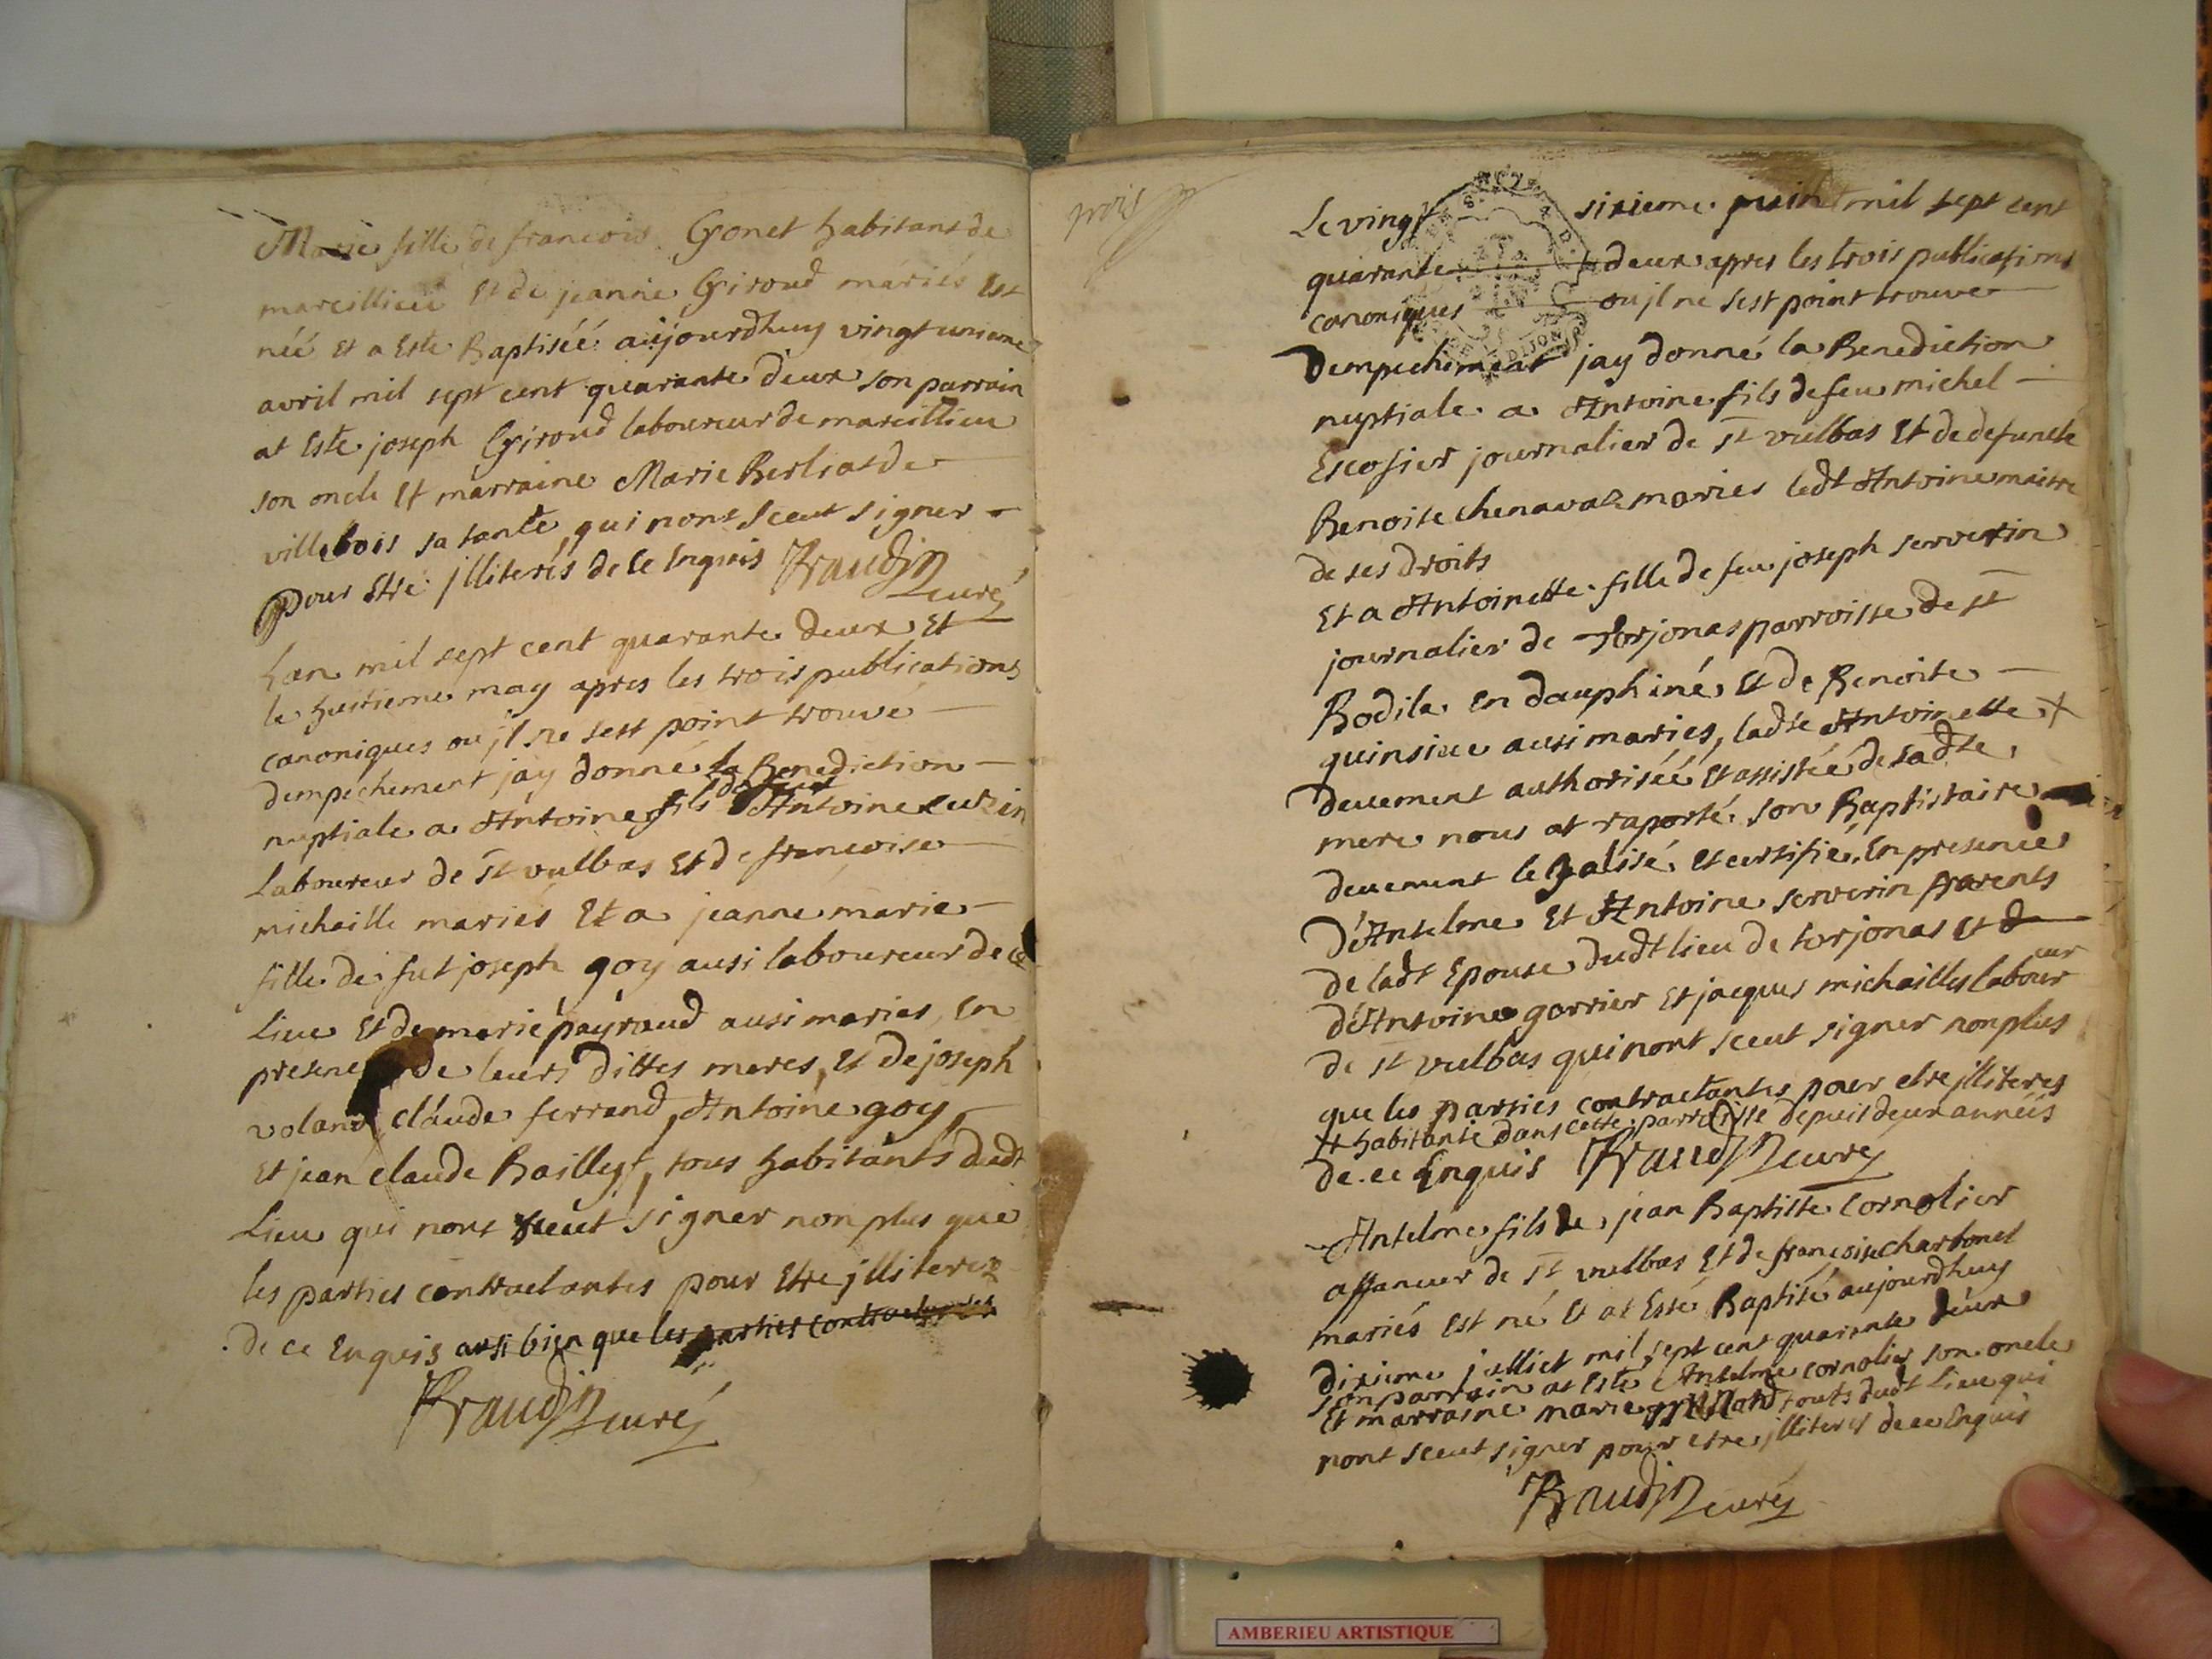 Marie fille de francois Gonet habitant de
marcillieu Et de jeanne Giroud mariés Est
néé et a Este Baptisée aujourdhuy vingt unieme
avril mil sept cent quarante deux son parrain
at Este joseph Giroud laboureur de marcillieu
son oncle Et marraine Marie Berliat de
villebois sa tante, qui nont sceut signer
pour Etre jlliterés de ce Enquis Braudin
curé
Lan mil sept cent quarante deux Et
le huitieme may apres les trois publications
canoniques ou jl ne sest point trouvé
dempechement jay donné la Benediction
nuptiale a Antoine fils Antoine
Laboureur de st vulbas Et de francoise
michaille mariés Et a jeanne marie
fille de fut joseph goy ausi laboureur de ce
Lieu Et de marie payraud ausi mariés, En
presence de leurs dittes meres, Et de joseph
voland claude ferrand, Antoine goy
Et jean claude Baillet, tous habitants dudt
Lieu qui nont sceut signer non plus que
les parties contractantes pour Etre jlliterez
de ce Enquis ausi bien que les parties contractantes
Braudin curé
trois
Le vingt sixieme juin mil sept cent
quarante deux apres les trois publications
canoniques ou jl ne sest point trouvé
Dempechement jay donné la Benediction
nuptiale a Antoine fils de feu michel
Escosier journalier de st vulbas Et de defuncte
Benoite chenaval mariés ledt Antoine maitre
de ses droits
Et a Antoinette fille de feu joseph serverin
journalier de Torjonas parroisse de st
Bodile en dauphiné Et de Benoite
quinsieu ausi mariés, ladte Antoinette +
deuement authorisée Et assistéé de sadte
mere nous at raporté son Baptistaire
deuement legalisé et certifié, En presence
d'Antelme Et Antoine serverin parents
de ladt Epouse dudt lieu de torjonas Et
d'Antoine garrier Et jacques michailles laboureur
de st vulbas qui nont sceut signer non plus
que les parties contractantes pour etre jlliteres
+ habitante dans cette parroisse depuis deux années
de ce Enquis Braudin curé
Antelme fils de jean Baptiste Cornolier
affaneur de st vulbas Et de françoise charbonet
mariés Est né Et at Esté Baptisé aujourdhuy
dixieme julliet mil sept cent quarante deux
son parrain at Esté Antelme cornolier son oncle
Et marraine marie touts dudt Lieu qui
nont sceut signer pour etre jlliteres de ce Enquis
Braudin curé
AMBERIEU ARTISTIQUE